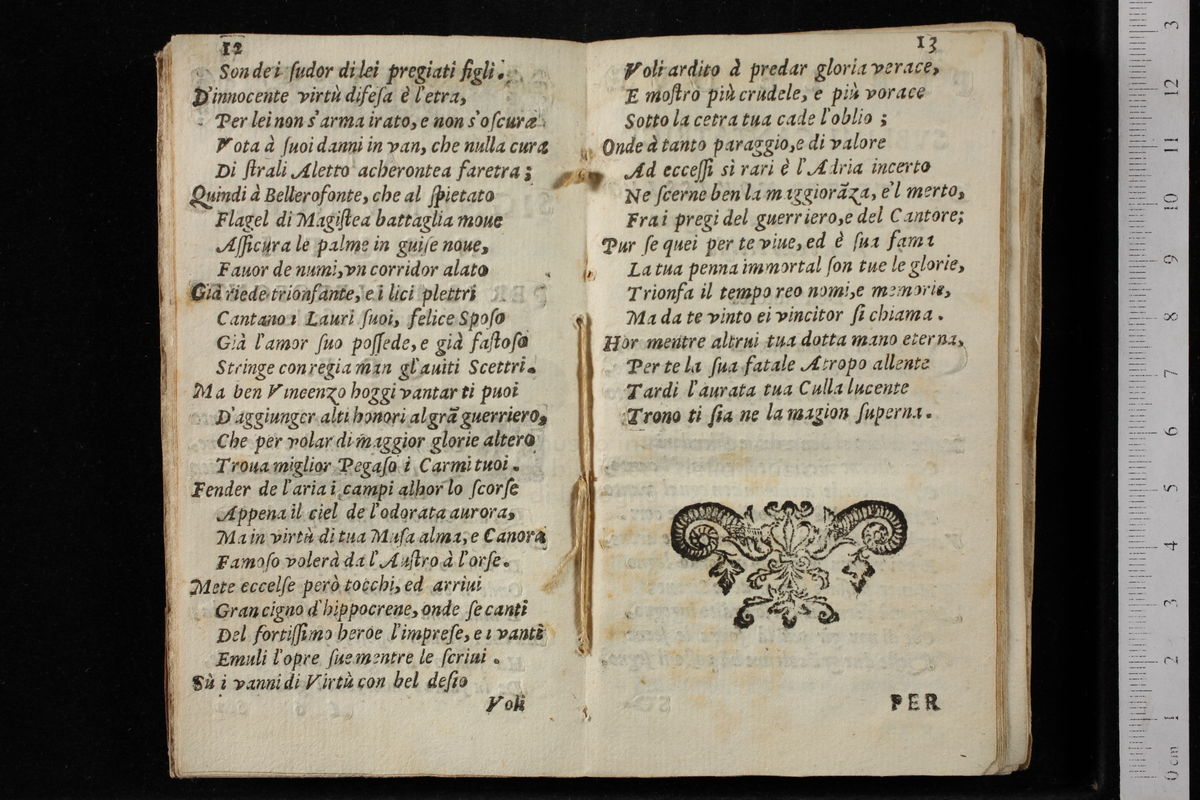 12
Son de i ſudor di lei pregiati figli.
D'innocente virtù difeſa è l'etra,
Per lei non s'arma irato, e non s'oſcura
Vota à ſuoi danni in van, che nulla cura
Di ſtrali Aletto acherontea faretra;
Quindi à Bellerofonte, che al ſpietato
Flagel di Magiſtea battaglia moue
Aſſicura le palme in guiſe noue,
Fauor de numi, vn corridor alato
Già riede trionfante, e i lici plettri
Cantano i Lauri ſuoi, felice Spoſo
Già l'amor ſuo poſſede, e già faſtoſo
Stringe con regia man gl'auiti Scettri.
Ma ben Vincenzo hoggi vantar ti puoi
D'aggiunger alti honori al grã guerriero,
Che per volar di maggior glorie altero
Troua miglior Pegaſo i Carmi tuoi.
Fender de l'aria i campi alhor lo ſcorſe
Appena il ciel de l'odorata aurora,
Ma in virtù di tua Muſa alma, e Canora
Famoſo volerà da l'Auſtro à l'orſe.
Mete eccelſe però tocchi, ed arriui
Gran cigno d'hippocrene, onde ſe canti
Del fortiſſimo heroe l'impreſe, e i vanti
Emuli l'opre ſue mentre le ſcriui.
Sù i vanni di Virtù con bel deſio
Voli
13
Voli ardito à predar gloria verace,
E moſtro più crudele, e più vorace
Sotto la cetra tua cade l'oblio;
Onde à tanto paraggio, e di valore
Ad ecceſſi sì rari è l'Adria incerto
Ne ſcerne ben la maggiorãza, e'l merto,
Fra i pregi del guerriero, e del Cantore;
Pur ſe quei per te viue, ed è ſua fama
La tua penna immortal ſon tue le glorie,
Trionfa il tempo reo nomi, e memorie,
Ma da te vinto ei vincitor ſi chiama.
Hor mentre altrui tua dotta mano eterna,
Per te la ſua fatale Atropo allente
Tardi l'aurata tua Culla lucente
Trono ti ſia ne la magion ſuperna.
PER
0 cm 1 2 3 4 5 6 7 8 9 10 11 12 3